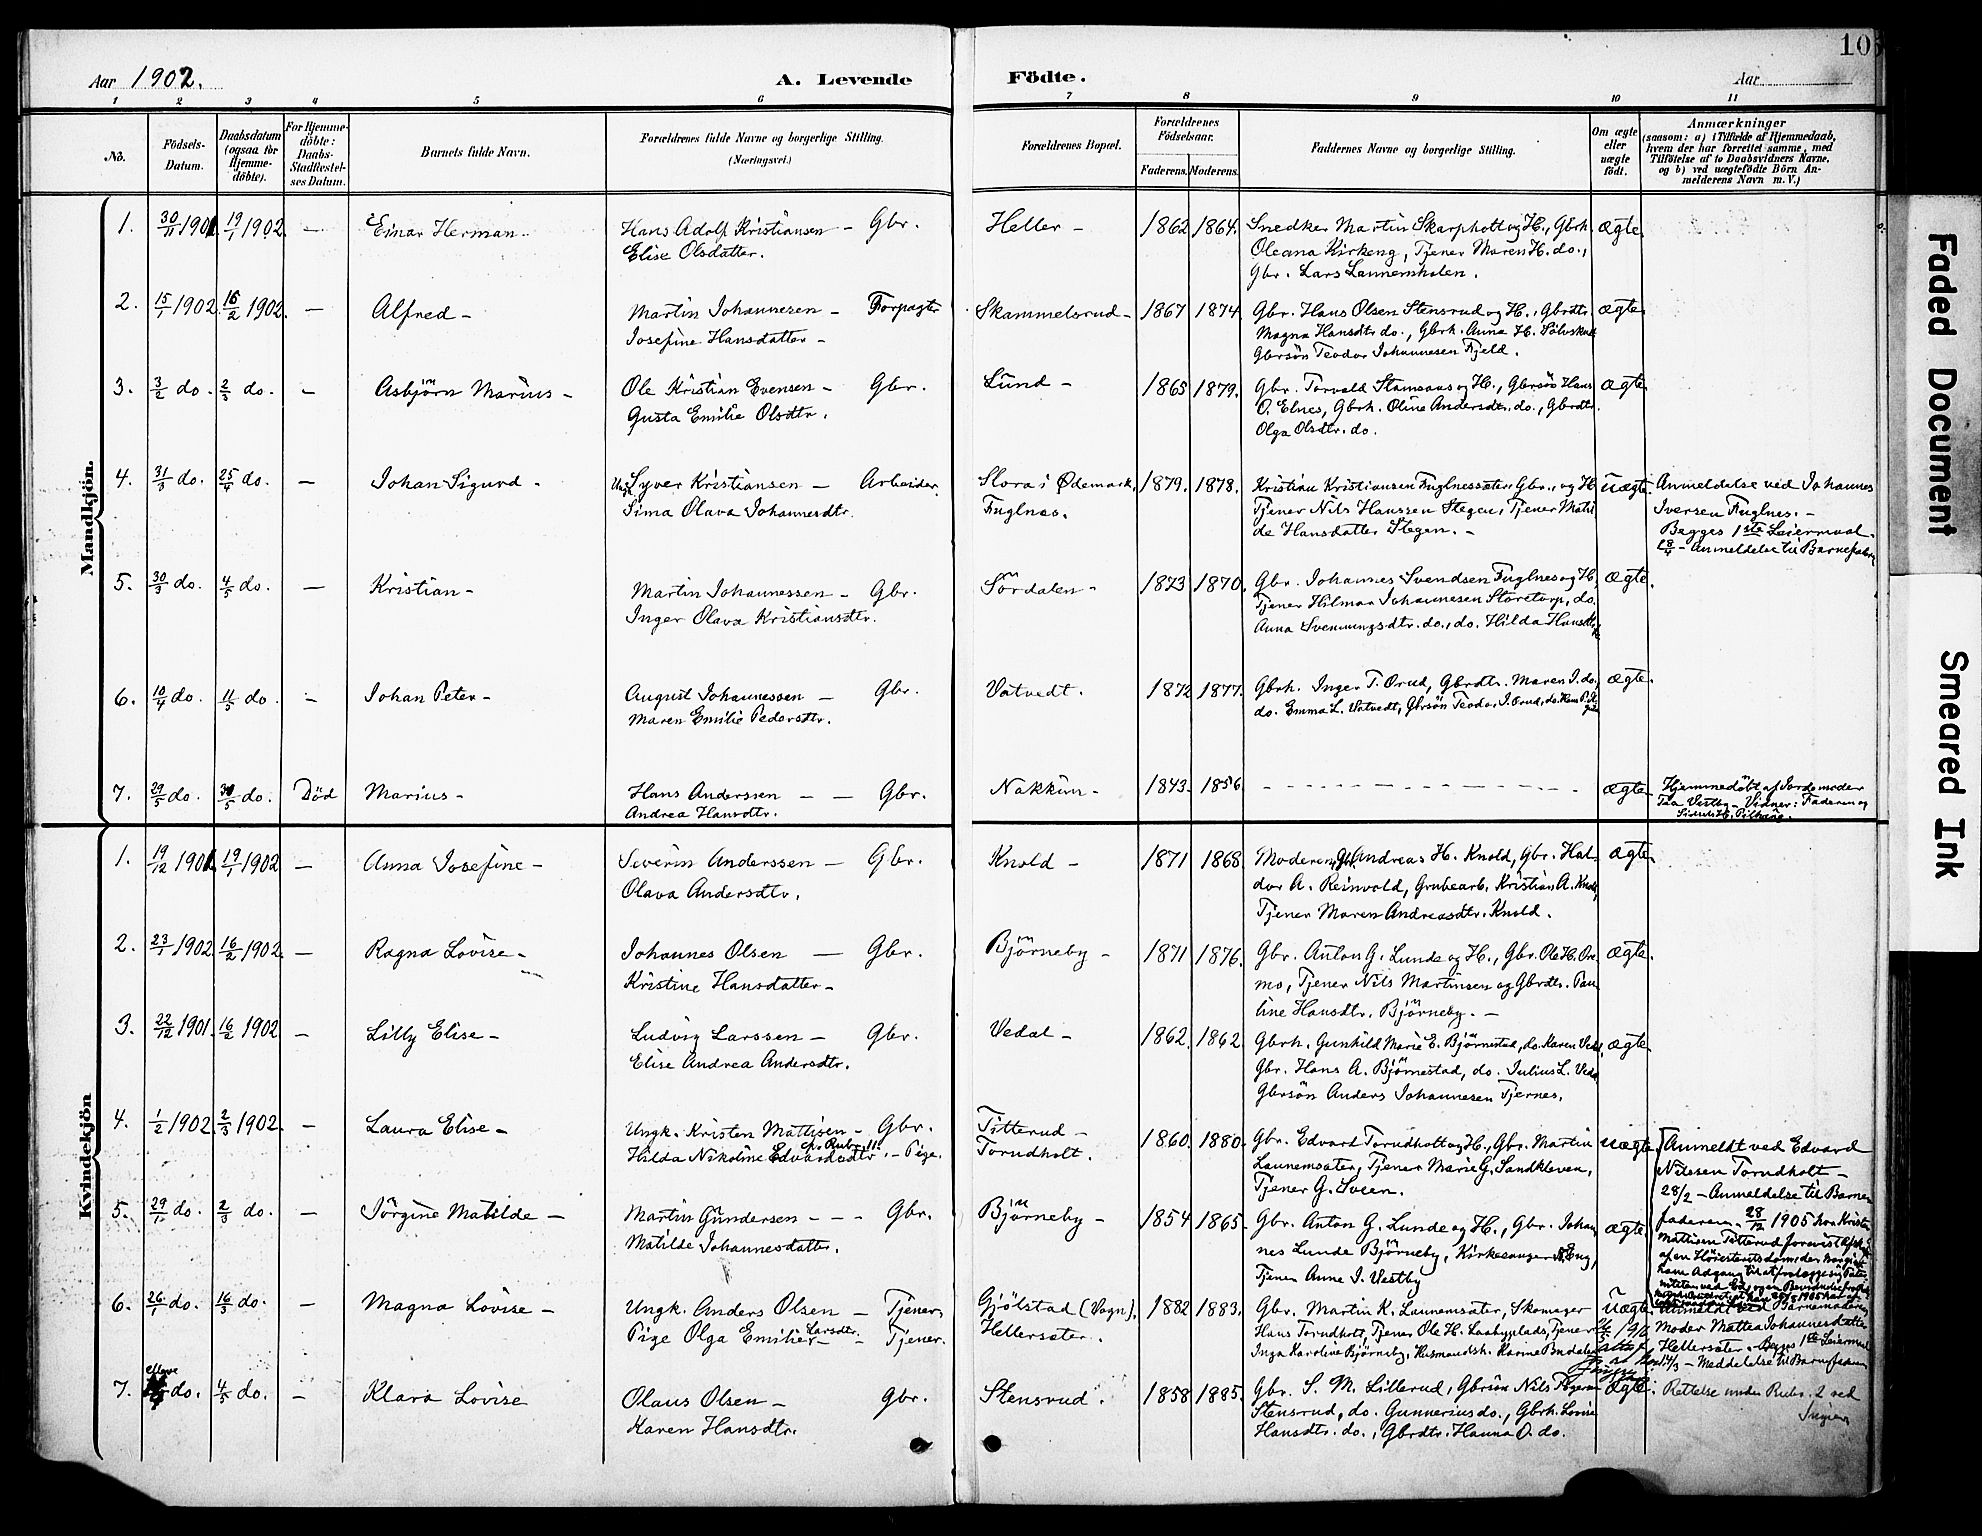 Aar 1902. A. Levende Födte. Aar 10
1 2 3 4 5 6 7 8 9 10 11
No. Födsels-Datum. Daabsdatum (ogsaa for Hjemme-döbte). For Hjemme-döbte: Daabs-Stadfæstel-ses Datum. Barnets fulde Navn. Forældrenes fulde Navne og borgerlige Stilling. (Næringsvei.) Forældrenes Bopæl. Forældrenes Födselsaar. Faderens. Moderens. Faddernes Navne og borgerlige Stilling. Om ægte eller uægte födt. Anmærkninger
(saasom: a) i Tilfælde af Hjemmedaab,
hvem der har forrettet samme, med
Tilföielse af to Daabsvidners Navne,
og b) ved uægtefödte Börn An-
melderens Navn m. V.)
Mandkjön.
1. 30/11 1901. 19/1 1902. — Einar Herman. Hans Adolf Kristiansen – Gbr. Heller – 1862 1864. Snedker Martin Skarpholt og H., Gbrh. ægte.
Elise Olsdatter. Oleana Kirkeng, Tjener Maren H. do.,
Gbr. Lars Launemholen.
2. 15/1 1902. 16/2 1902. — Alfred – Martin Johannesen – Forpagter Skammelsrud – 1867 1874. Gbr. Hans Olsen Stensrud og H., Gbrdtr. ægte.
Josefine Hansdatter – Magna Hansdtr. do., Gbrh. Anna H.
Gbrsön Teodor Johannesen Fjeld.
3. 3/2 do. 2/3 do. – Asbjörn Marius – Ole Kristian Evensen – Gbr. Lund – 1865 1879. Gbr. Torvald Stamsaas og H., Gbrsön Hans ægte.
Gusta Emilie Olsdtr. O. Elnes, Gbrh. Oline Andersdtr. do., Gbrdtr.
Olga Olsdtr. do.
4. 31/3 do. 25/4 do. — Johan Sigurd – Ungk. Syver Kristiansen – Arbeider. Slora i Ødemark, 1879. 1878. Kristian Kristiansen Fuglnessæter, Gbr., og H. uægte. Anmeldelse ved Johannes
Sima Olava Johannesdtr. Fuglnes. Tjener Nils Hanssen Stegen, Tjener Matil- Iversen Fuglnes. –
de Hansdatter Stegen. – Begges 1ste Leiermaal.
28/4 – Anmeldelse til Barnefaderen
5. 30/3 do. 4/5 do. — Kristian – Martin Johannessen – Gbr. Sördalen – 1873 1870. Gbr. Johannes Svendsen Fuglnes og H. ægte.
Inger Olava Kristiansdtr. Tjener Hilmar Johannesen Storetorp, do.
Anna Svenningsdtr. do., do. Hilda Hansdtr.
6. 10/4 do. 11/5 do. – Johan Peter – August Johannessen – Gbr. Vatvedt. 1872 1877. Gbrh. Inger T. Orud, Gbrdtr. Maren I. do., ægte.
Maren Emilie Pedersdtr. do. Emma L. Vatvedt, Gbrsön Teodor I. Orud, do.
7. 29/5 do. 30/5 do. Död Marius – Hans Anderssen – – Gbr. Nakkim – 1843. 1856. – – – – – – – – – ægte. Hjemmedöbt af Jordemoder
Andrea Hansdtr. Vestby – Vidner: Faderen og
Kvindekjön
1. 19/12 1901. 19/1 1902 – Anna Josefine – Severin Anderssen – Gbr. Knold – 1871 1868. Moderen, Gbr. Andreas H. Knold, Gbr. Hal- ægte.
Olava Andersdtr. dor A. Reinvold, Grubearb. Kristian A. Knold,
Tjener Maren Andreasdtr. Knold.
2. 23/1 1902. 16/2 1902. — Ragna Lovise – Johannes Olsen — Gbr. Björneby – 1871 1876. Gbr. Anton G. Lunde og H., Gbr. Ole H. Ore- ægte.
Kristine Hansdatter – mo, Tjener Nils Martinsen og Gbrdtr. Pau-
line Hansdtr. Björneby. –
3. 22/12 1901. 16/2 1902 – Lilly Elise – Ludvig Larssen – Gbr. Vedal – 1862. 1862. Gbrh. Gunhild Marie E. Björnestad, do. Karen Vedal, ægte.
Elise Andrea Andersdtr. Gbr. Hans A. Björnestad, do. Julius L. Vedal
Gbrsön Anders Johannesen Tjernes.
4. 1/2 1902. 2/3 1902. – Laura Elise – Ungk. Kristen Mattisen – Gbr. Titterud – 1860. 1880. Gbr. Edvard Torudholt og H., Gbr. Martin uægte. Anmeldt ved Edvard
Hilda Nikoline Edvardsdtr. – Pige. Torudholt. Launemsæter, Tjener Marie G. Sandkleven, Nilssen Torudholt –
Tjener G. Sveen. 28/2 – Anmeldelse til Barne-
5. 29/1 do. 2/3 do. – Jörgine Matilde – Martin Gundersen – – – Gbr. Björneby – 1854 1865. Gbr. Anton G. Lunde og H., Gbr. Johan- ægte. faderen. 28/12 1905 har Kristen
Matilde Johannesdatter. nes Lunde Björneby, Kirkesanger Eng, Mattisen Titterud forevist
Tjener Anne I. Vestby af en Höiesteretsdom, der
6. 26/1 do. 16/3 do. – Magna Lovise – Ungk. Anders Olsen – Tjener. Gjölstad (Vogn), 1882 1883. Gbr. Martin K. Launemsæter, Skomager uægte. Anmeldt ved Barnemoderens
Pige Olga Emilie Larsdtr. – Tjener. Hellersæter. Hans Torudholt, Tjener Ole H. Laabyplads, Tjener Moder Mattea Johannesdatter
Inga Karoline Björneby, Husmandsh. Karine Budalen Hellersæter. – Begges 1ste Leiermaal
14/3 – Meddelelse til Barnefaderen
7. do. 4/5 do. – Klara Lovise Olaus Olsen – Gbr. Stensrud. 1858 1885. Gbr. S. M. Lillerud, Gbrsön Nils ægte. Rettelse under Rubr. 2 ved
Karen Hansdtr. Stensrud, do. Gunnerius do., Gbrh. Lovise
Hansdtr. do., Gbrdtr. Hanna O. do.
Faded Document
Smeared Ink